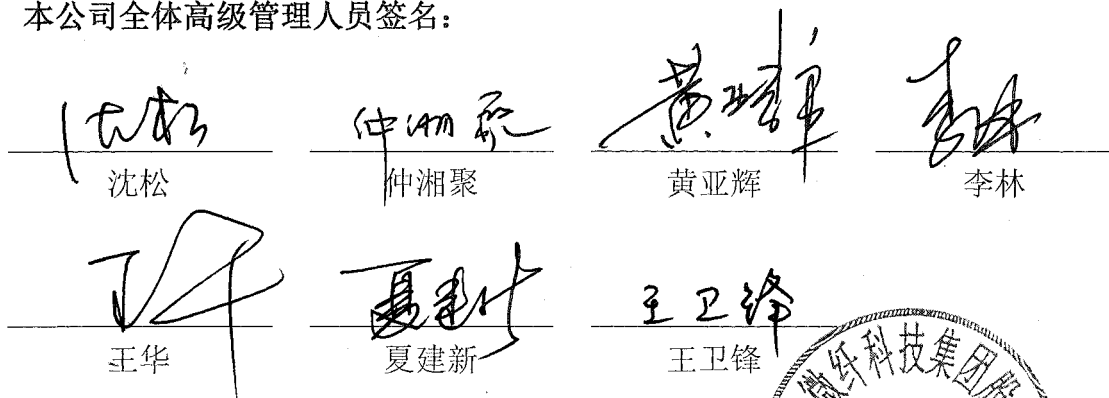 本公司全体高级管理人员签名：
沈松 仲湘聚 黄亚辉 李林
沈松 仲湘聚 黄亚辉 李林
王华 夏建新 王卫锋
王华 夏建新 王卫锋
微纤科技集团股